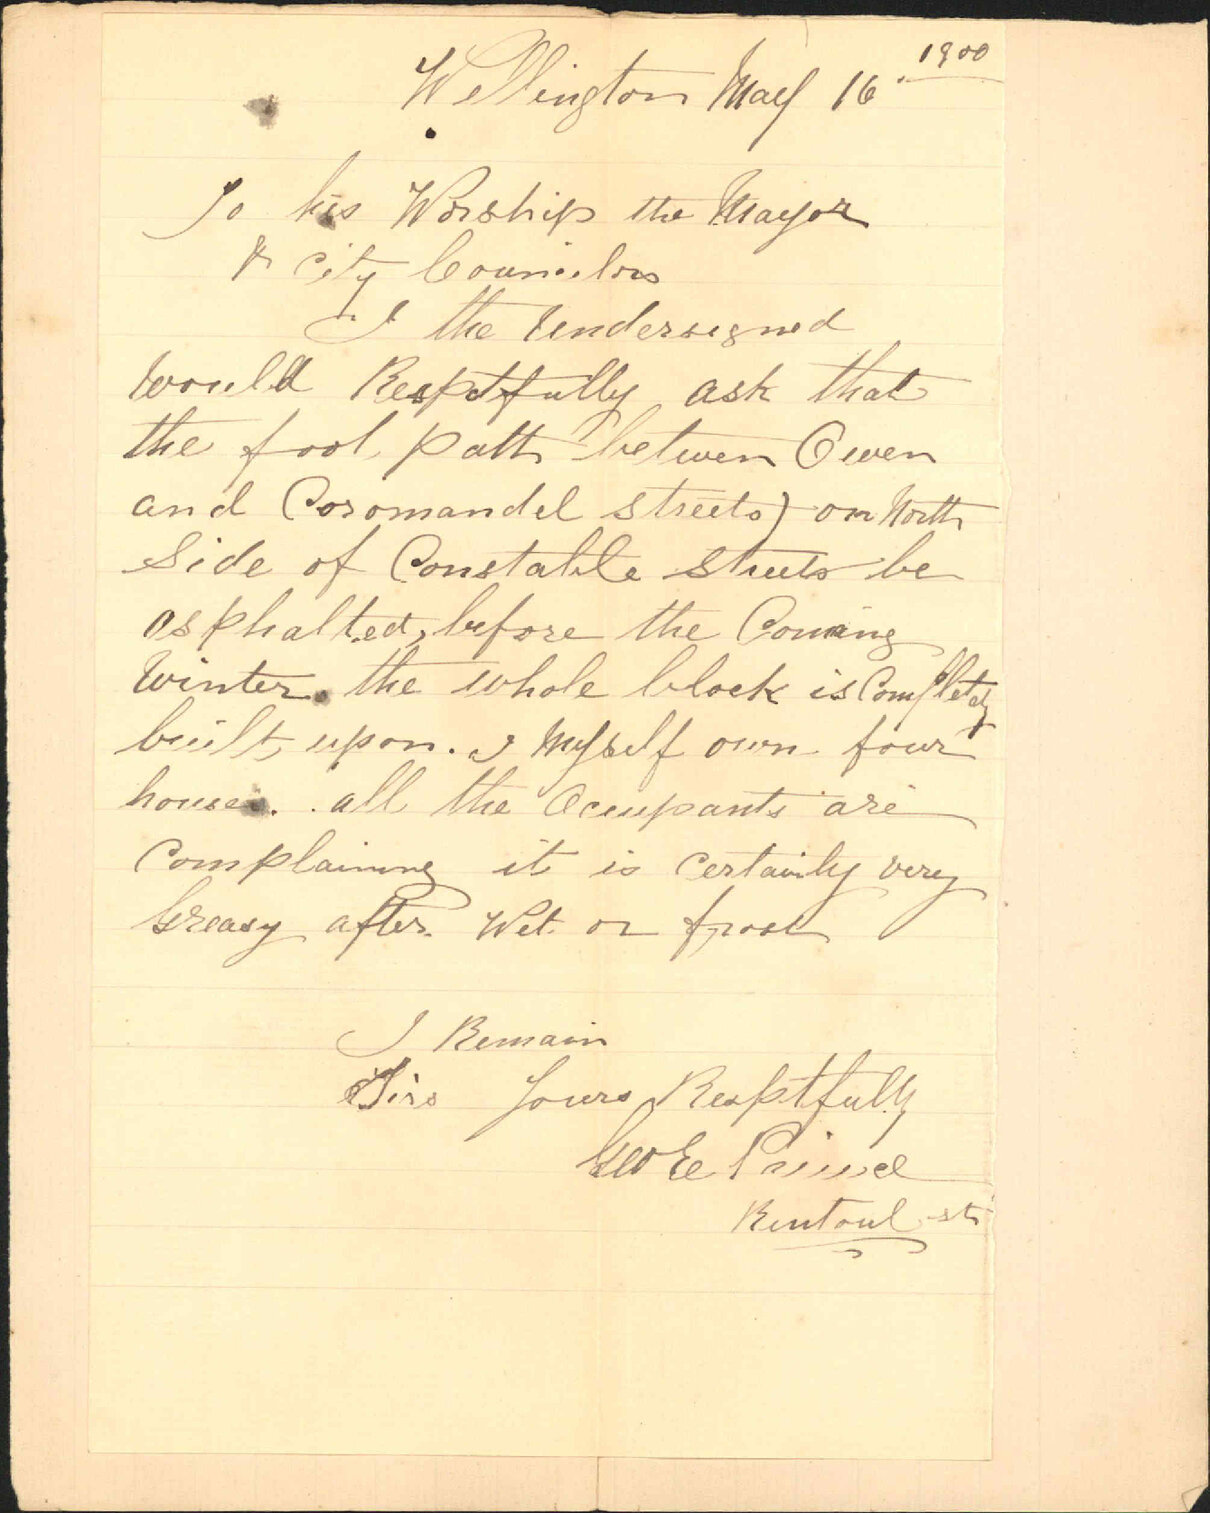 Wellington May 16. 1900
To his Worship the Mayor
& City Councilors
I the Undersigned
Would Respctfully ask that
the foot path between Owen
and Coromandel streets) on North
Side of Constable Streets be
asphalted, before the Coming
Winter. the whole block is Completely
built, upon. I Myself own four
houses. all the Occupants are
Complaining it is certainly very
Greasy after Wet or frost
I Remain
Sirs Yours Respctfully
Geo E Prince
Rintoul st